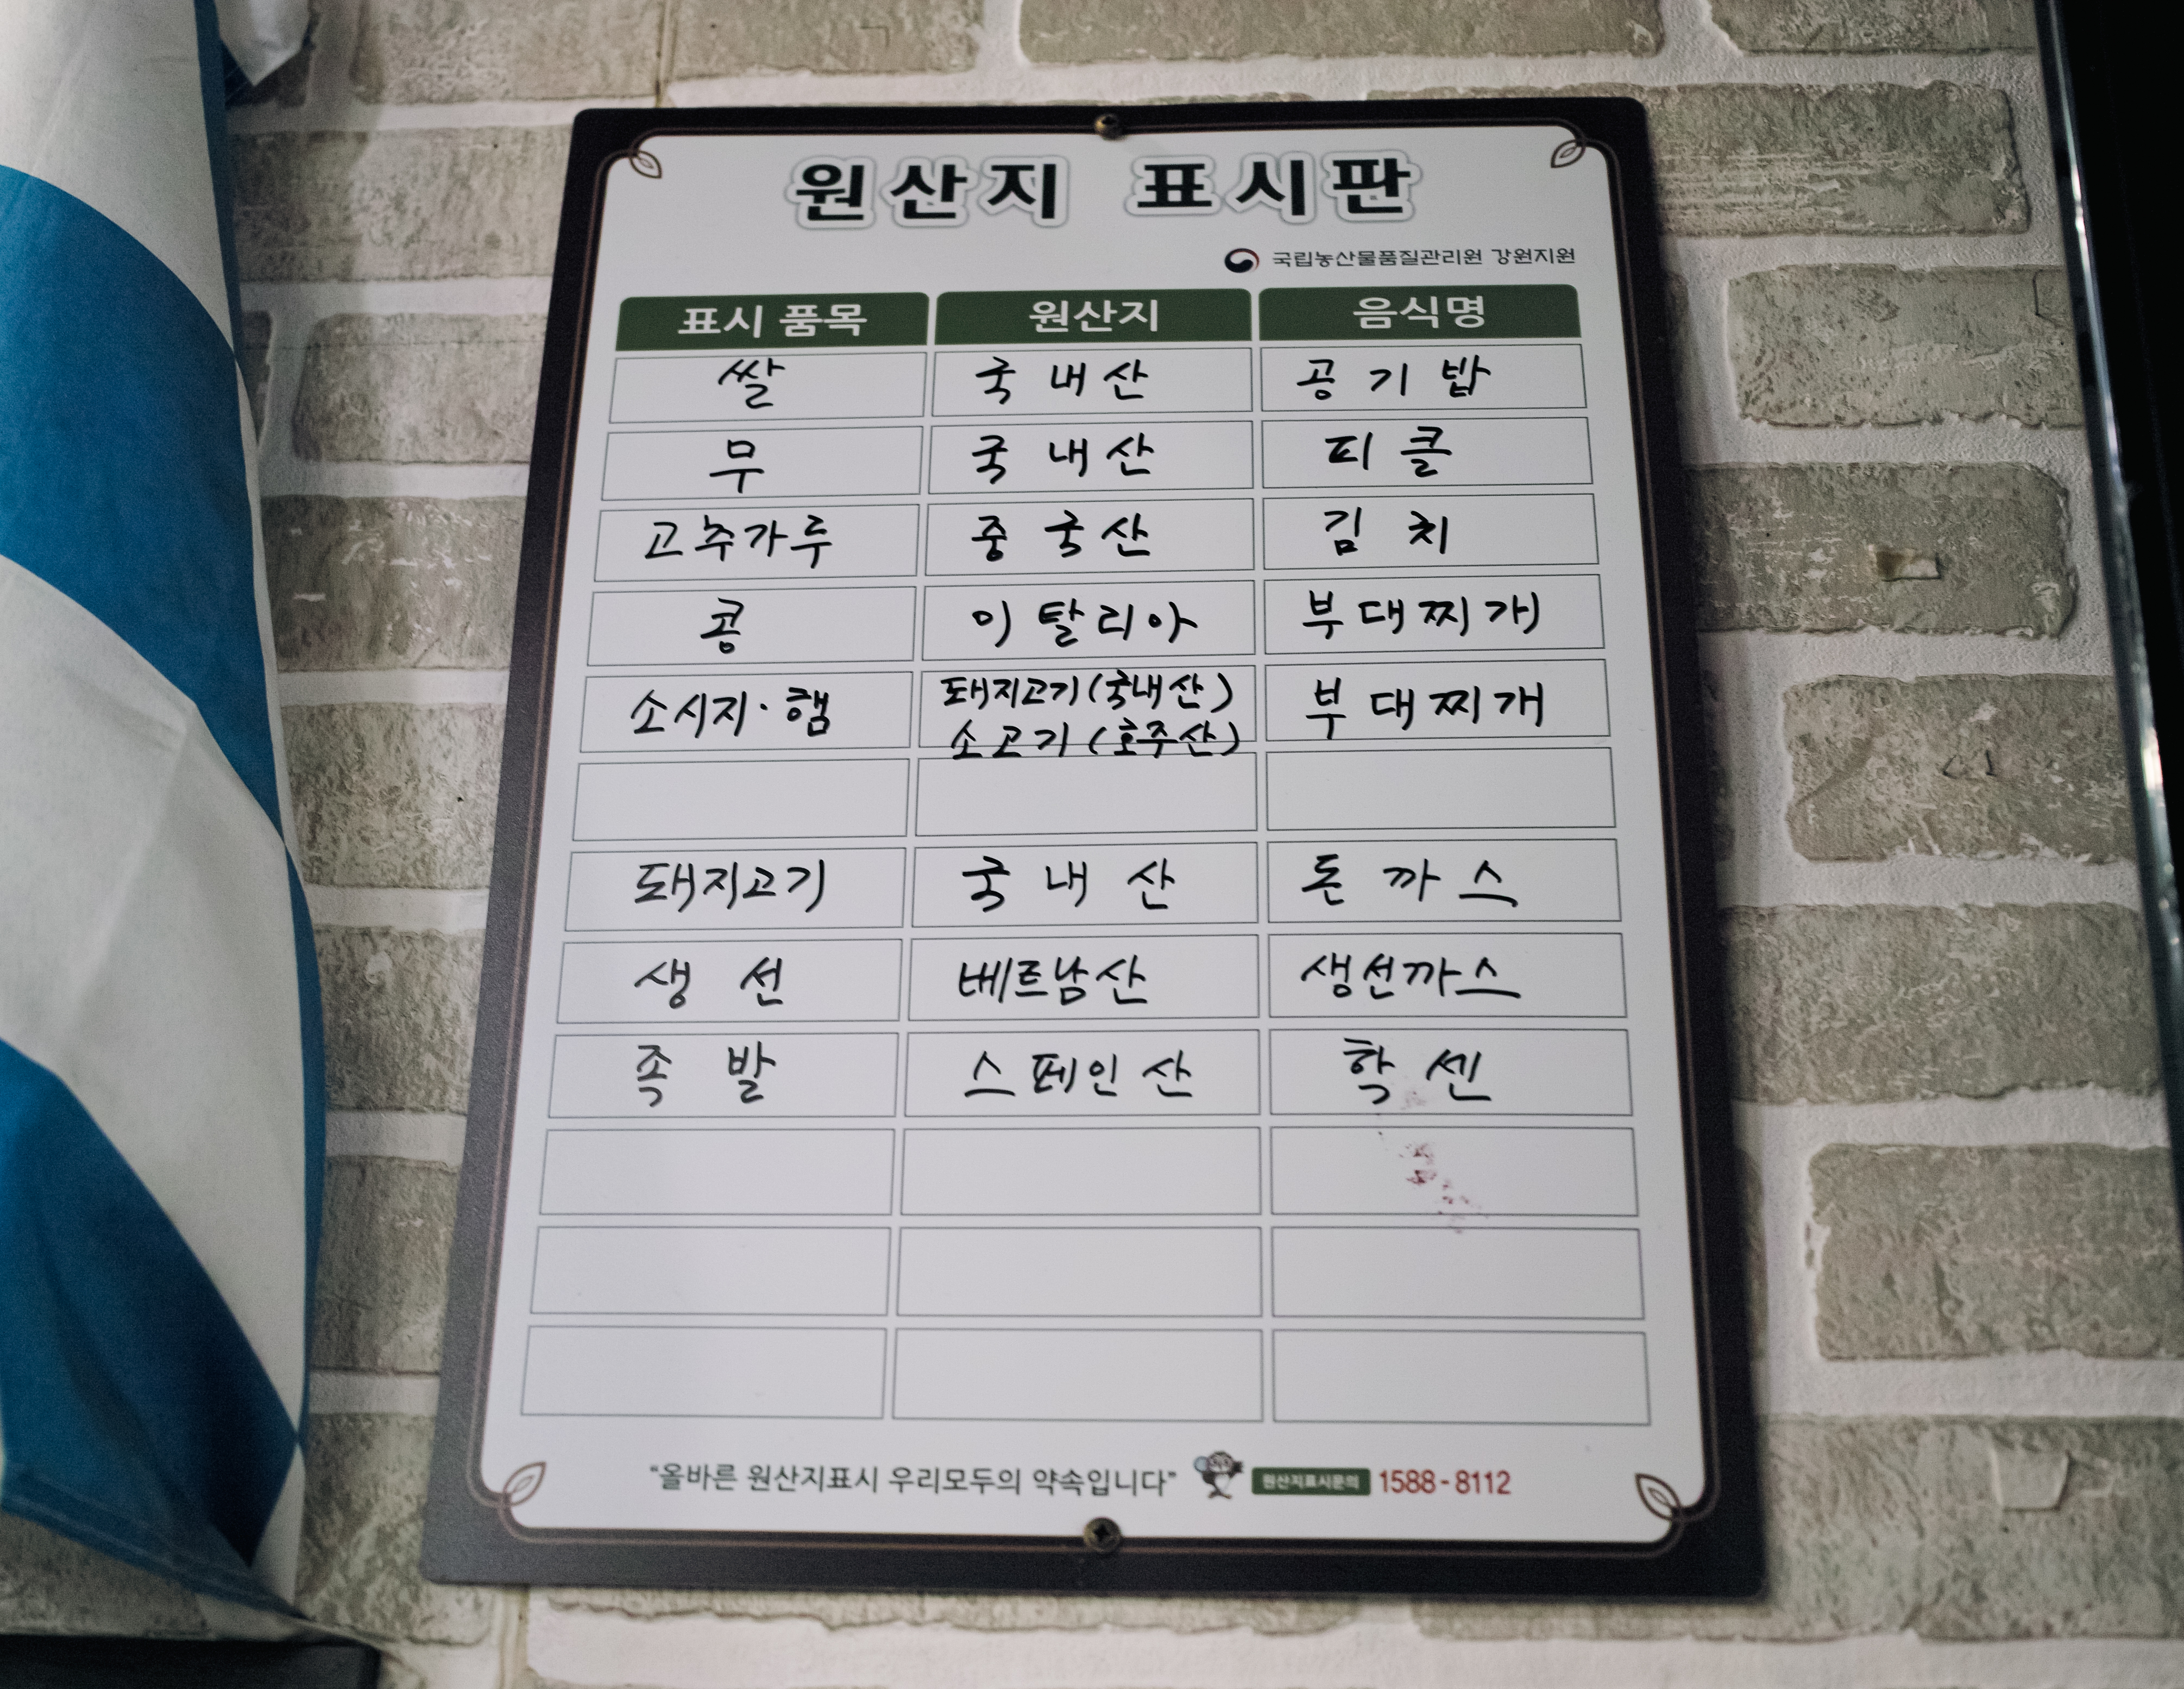 원산지 표시판
국립농산물품질관리원 강원지원
표시 품목 원산지 음식명
쌀 국내산 공기밥
무 국내산 피클
고추가루 중국산 김치
콩 이탈리아 부대찌개
소시지·햄 돼지고기(국내산) 부대찌개
소고기(호주산)
돼지고기 국내산 돈까스
생선 베트남산 생선까스
족발 스페인산 학센
“올바른 원산지표시 우리모두의 약속입니다” 원산지표시문의 1588-8112